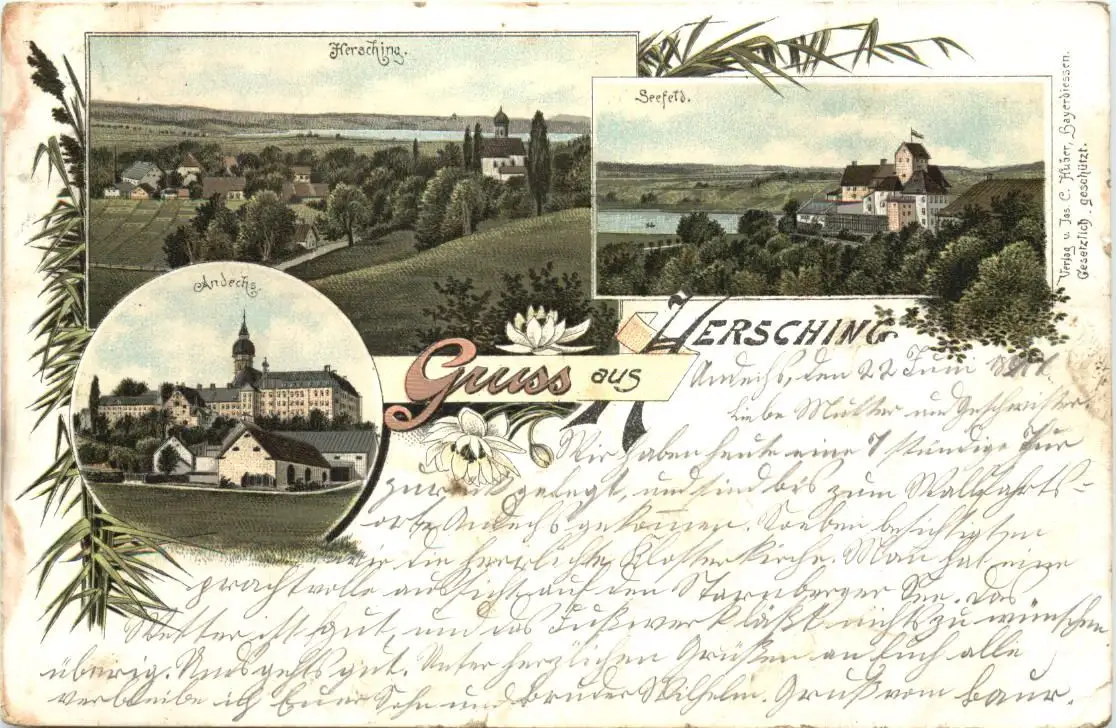 Hersching.
Seefeld.
Andechs.
Verlag v. Jos C. Huber, Bayerdiessen.
Gesetzlich geschützt.
Gruss aus HERSCHING
Andechs, den 22 Juni
Liebe Mutter und Geschwister
Wir haben heute eine 7 stündige Tur
zurück gelegt, und sind bis zum Wallfarts-
orte Andechs gekommen. Soeben besichtigten
wir die herrliche Klosterkirche. Man hat eine
prachtvolle aussicht auf den Starnberger See. Das
Wetter ist gut, und das Fußwerk läßt nichts zu wünschen
übrig. Uns gehts gut. Unter herzlichen Grüßen an Euch alle
verbleibe ich Euer Sohn und Bruder Wilhelm. Gruß vom Baur.